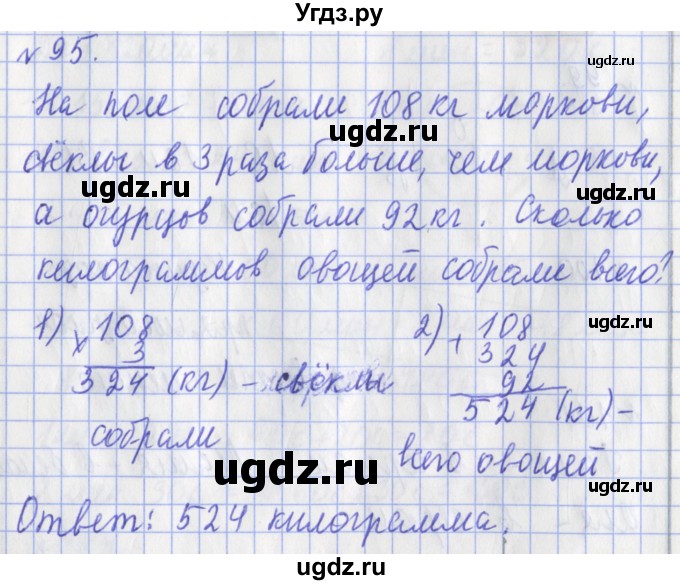 Угдз.ру
№95.
На поле собрали 108 кг моркови,
свёклы в 3 раза больше, чем моркови,
а огурцов собрали 92 кг. Сколько
килограммов овощей собрали всего?
1) 108 2) 108
× 3 + 324
324 (кг) – свёклы 92
собрали 524 (кг) –
всего овощей
Ответ: 524 килограмма.
ugdz.ru
ugdz.ru
ugdz.ru
ugdz.ru
ugdz.ru
ugdz.ru
ugdz.ru
ugdz.ru
ugdz.ru
ugdz.ru